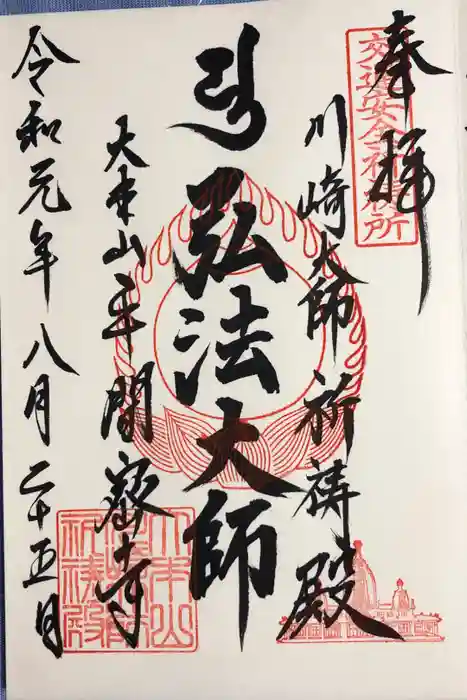 奉拝
交通安全祈祷所
川崎大師祈祷殿
弘法大師
大本山平間密寺
令和元年八月二十五日